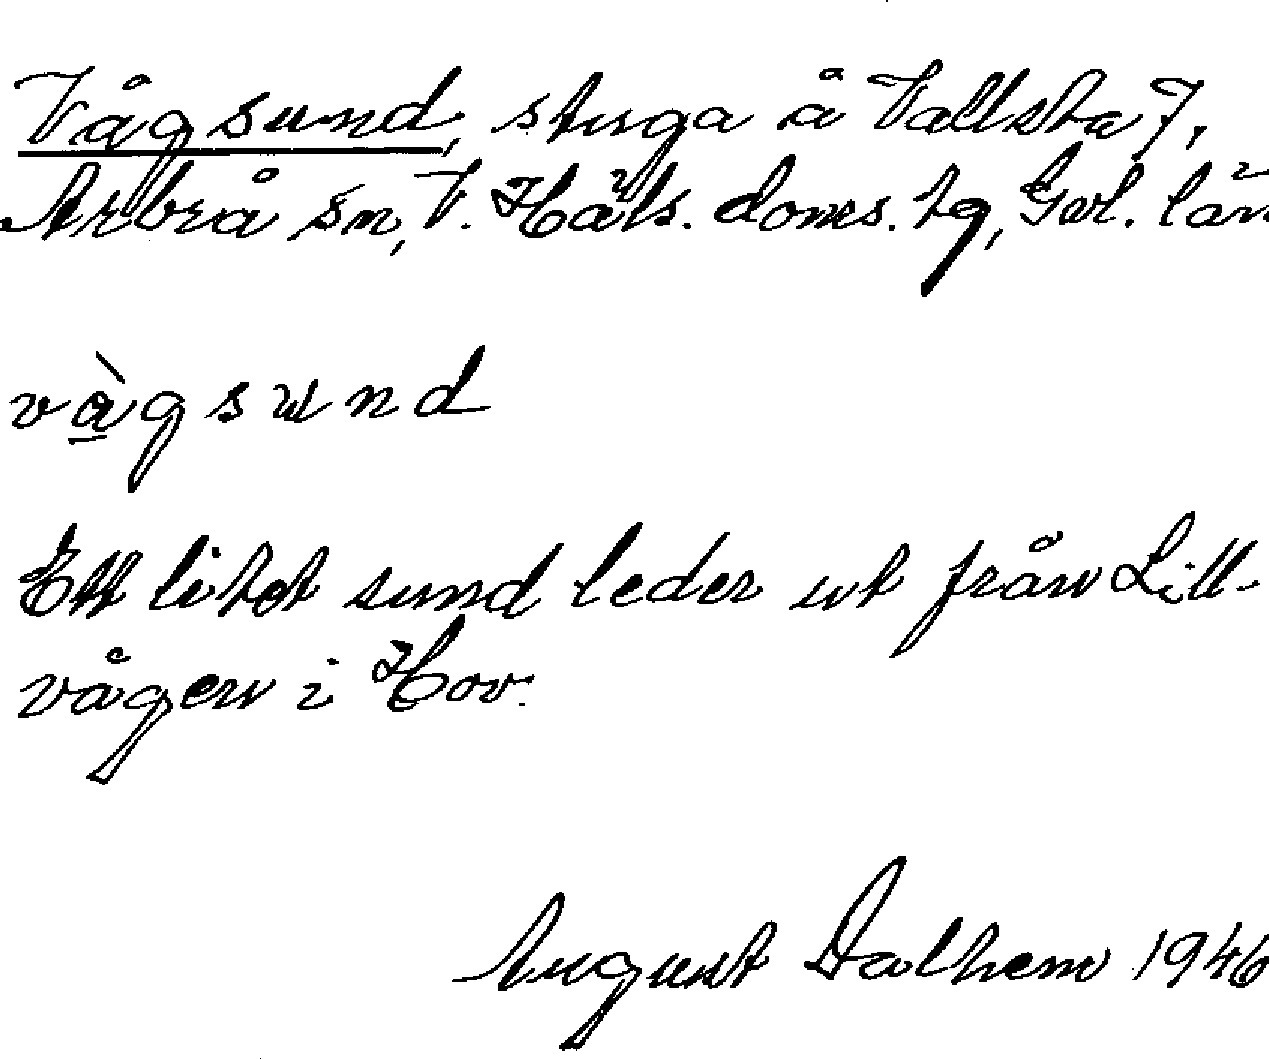 Vågsund, stuga å Vallsta 7,
Arbrå sn, V. Häls. doms. tg, Gävl. län
vàgsund
Ett litet sund leder ut från Lill-
vågen i Hov.
August Dalhem 1946